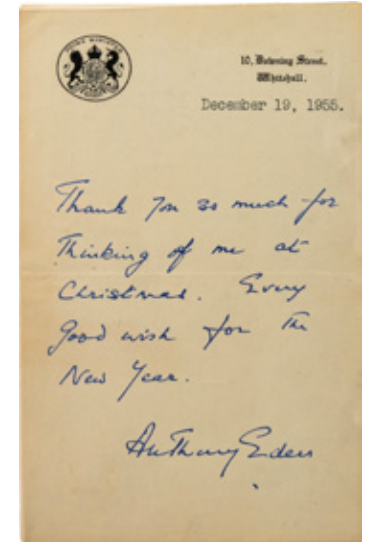 PRIME MINISTER
10, Downing Street,
Whitehall.
December 19, 1955.
Thank you so much for
Thinking of me at
Christmas. Every
good wish for the
New Year.
Anthony Eden